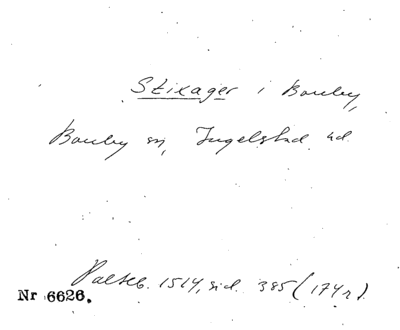 Stixager i Borrby,
Borrby sn, Ingelstad hd.
Palteb. 1514, sid. 385 (174 r).
Nr 6626.